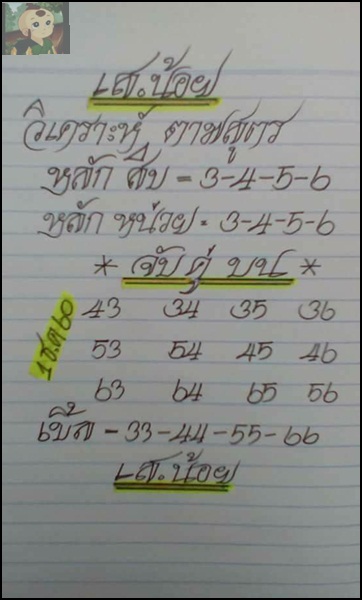 เส.น้อย
วิเคราะห์ ตามสูตร
หลัก สิบ = 3-4-5-6
หลัก หน่วย = 3-4-5-6
* จับคู่ บน *
43 34 35 36
1ธ.ค60
53 54 45 46
63 64 65 56
เบิ้ล - 33-44-55-66
เส.น้อย